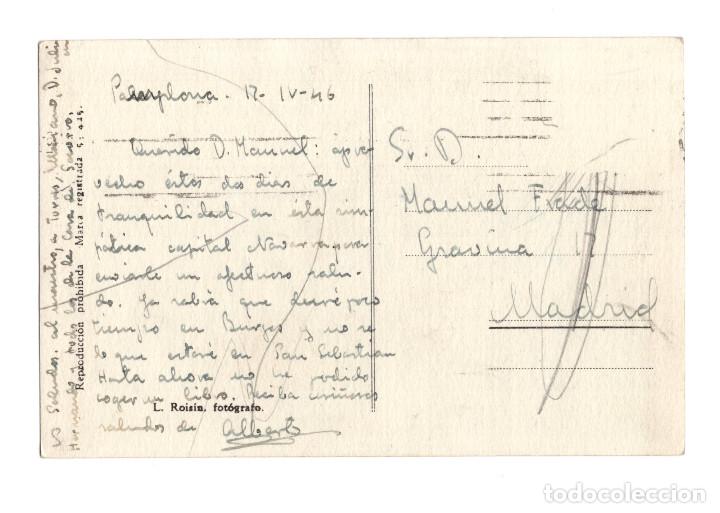 Pamplona. 17-IV-46
Querido D. Manuel: apro
vecho éstos dos dias de
tranquilidad en esta sim
pática capital Navarra para
enviarle un afectuoso salu-
do. Ya sabía que duré poco
tiempo en Burgos y no sé
lo que estaré en San Sebastian
Hasta ahora no he podido
coger un libro. Reciba cariñosos
saludos de Alberto
L. Roisin, fotógrafo.
Saludos al maestro, a Torres, D. Julio
Hernando y todos los de la Casa de
Reproducción prohibida Marca registrada
Sr. D.
Manuel Frade
Gravina 17
Madrid
todocoleccion.net